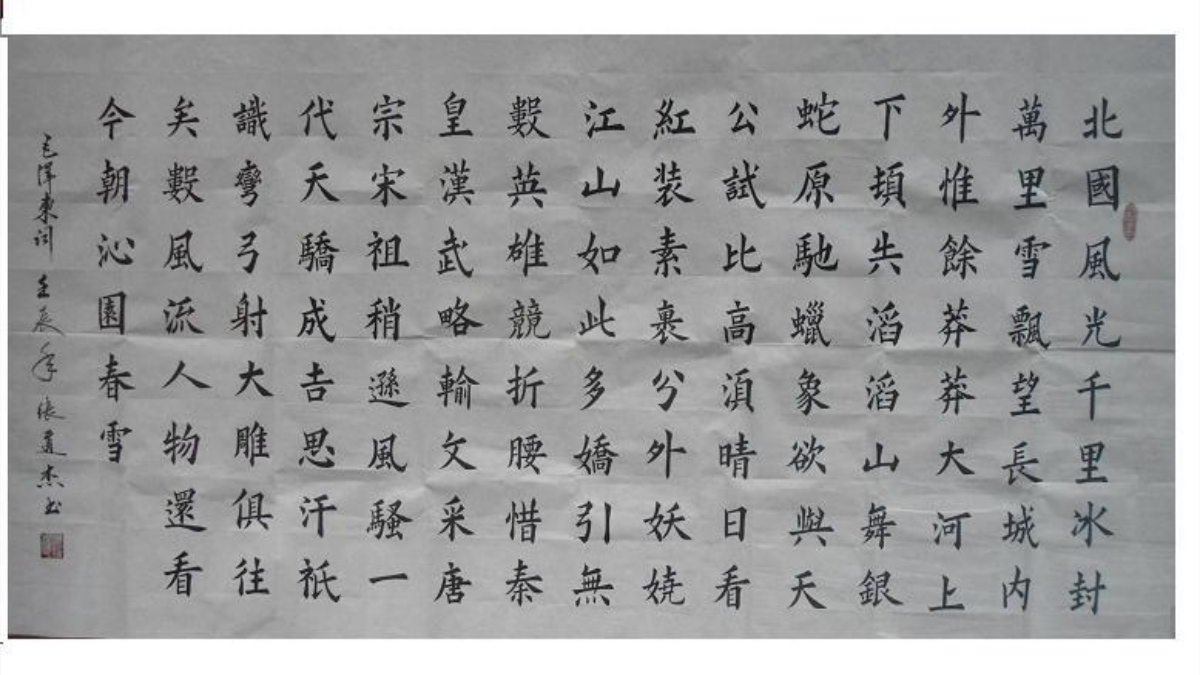 北國風光千里冰封
萬里雪飄望長城内
外惟餘莽莽大河上
下頓失滔滔山舞銀
蛇原馳蠟象欲與天
公試比高湏晴日看
紅装素裹兮外妖嬈
江山如此多嬌引無
數英雄競折腰惜秦
皇漢武略輸文采唐
宗宋祖稍遜風騷一
代天驕成吉思汗祇
識彎弓射大雕俱往
矣數風流人物還看
今朝沁園春雪
毛澤東詞 壬辰年 張道杰书